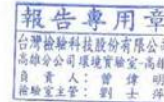 報告專用章
台灣檢驗科技股份有限公
高雄分公司環境實驗室-高雄
負責人：曾煒明
檢驗室主管：劉士萍